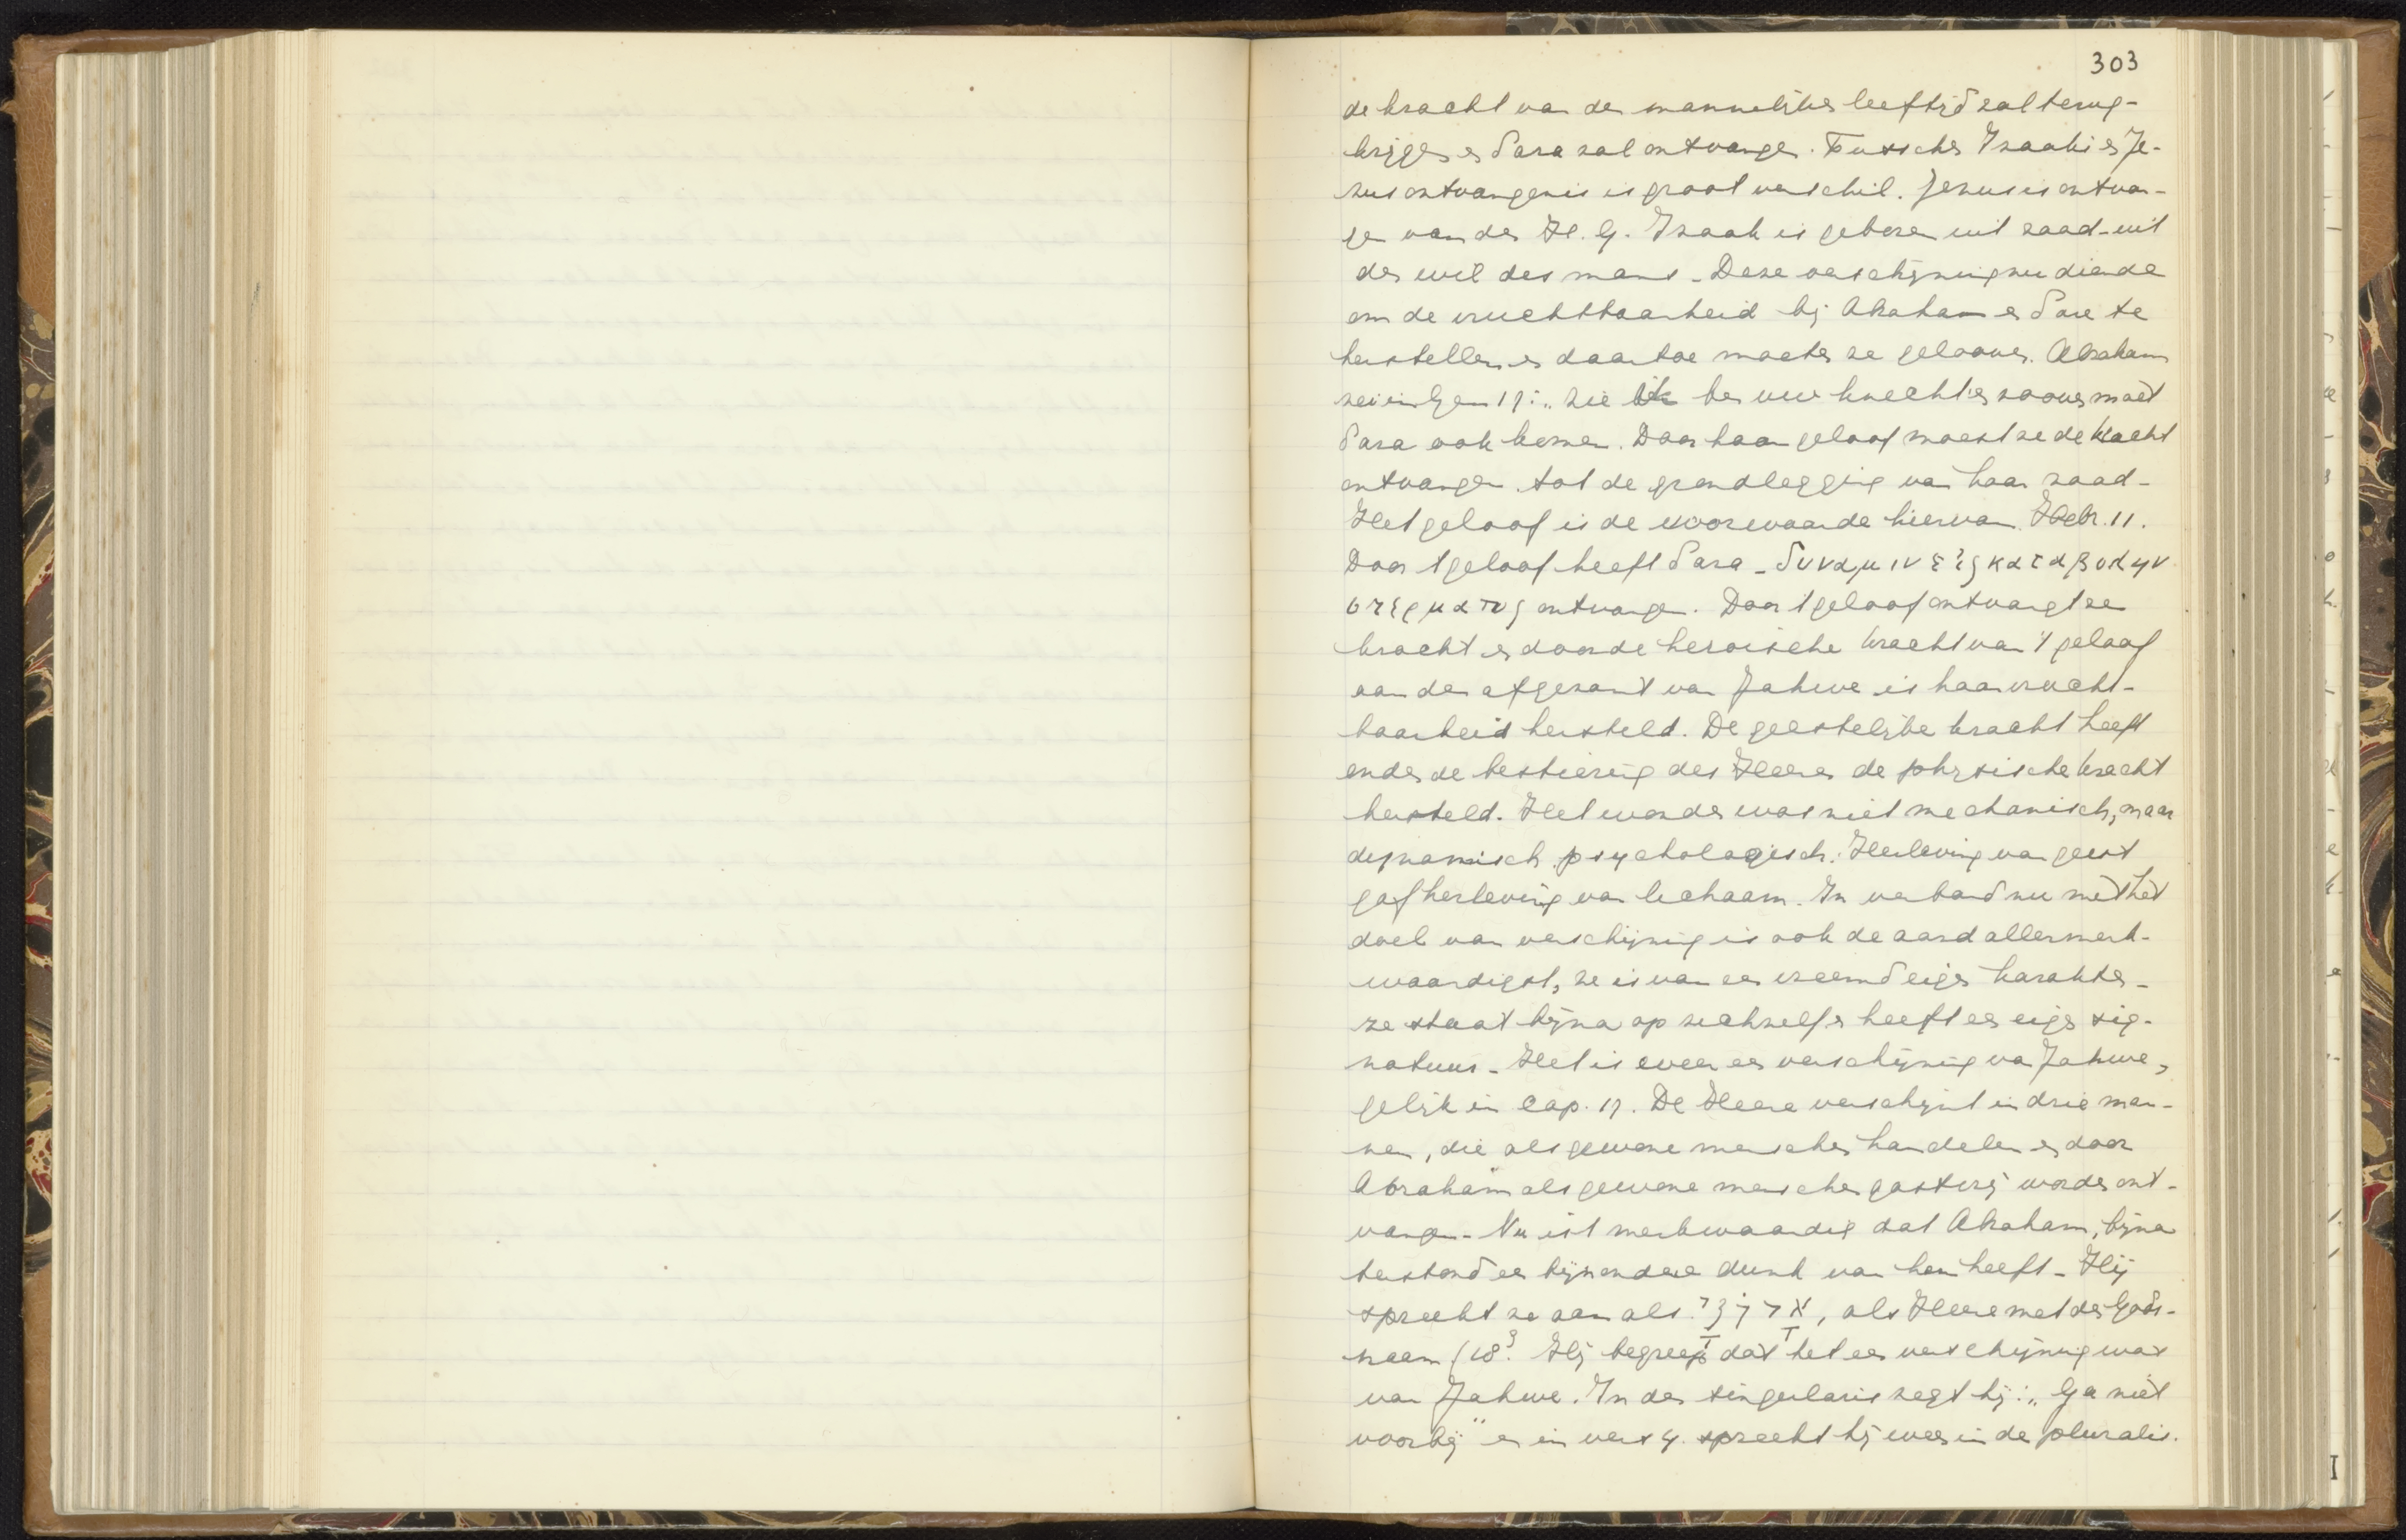 303
de kracht van den mannelijken leeftijd zal terug-
krijgen en Sara zal ontvangen. Tusschen Izaaks en Je-
zus ontvangenis is groot verschil. Jezus is ontvan-
gen van den H. G. Izaak is geboren uit zaad - uit
den wil des mans - Deze verschijning nu diende
om de vruchtbaarheid bij Abraham en Sara te
herstellen en daartoe moeten ze gelooven. Abraham
zei in Gen 17: „Zie ik ben uw knecht" en zoover moet
Sara ook komen. Door haar geloof moest ze de kracht
ontvangen tot de grondlegging van haar zaad -
Het geloof is de voorwaarde hiervan. Hebr. 11.
Door 't geloof heeft Sara - δυναμιν εις καταβολην
σπερματος ontvangen. Door 't geloof ontvangt ze
kracht en door de heroische kracht van 't geloof
aan den afgezant van Jahwe is haar vrucht-
baarheid hersteld. De geestelijke kracht heeft
onder de bestiering des Heeren de physische kracht
hersteld. Het wonder was niet mechanisch, maar
dynamisch psychologisch. Herleving van geest
gaf herleving van lichaam. In verband nu met het
doel van verschijning is ook de aard allermerk-
waardigst, ze is van een vreemd eigen karakter -
ze staat bijna op zichzelf en heeft een eigen sig-
natuur - Het is weer een verschijning van Jahwe,
gelijk in Cap. 17. De Heere verschijnt in drie man-
nen, die als gewone menschen handelen en door
Abraham als gewone menschen gastvrij worden ont-
vangen - Nu is 't merkwaardig dat Abraham, bijna
terstond een bijzondere dunk van hen heeft - Hij
spreekt ze aan als אֲדֹנָי, als Heere met den Gods-
naam (18³. Hij begreep dat het een verschijning was
van Jahwe. In den singularis zegt hij: „Ga niet
voorbij" en in vers 4 spreekt hij weer in de pluralis.